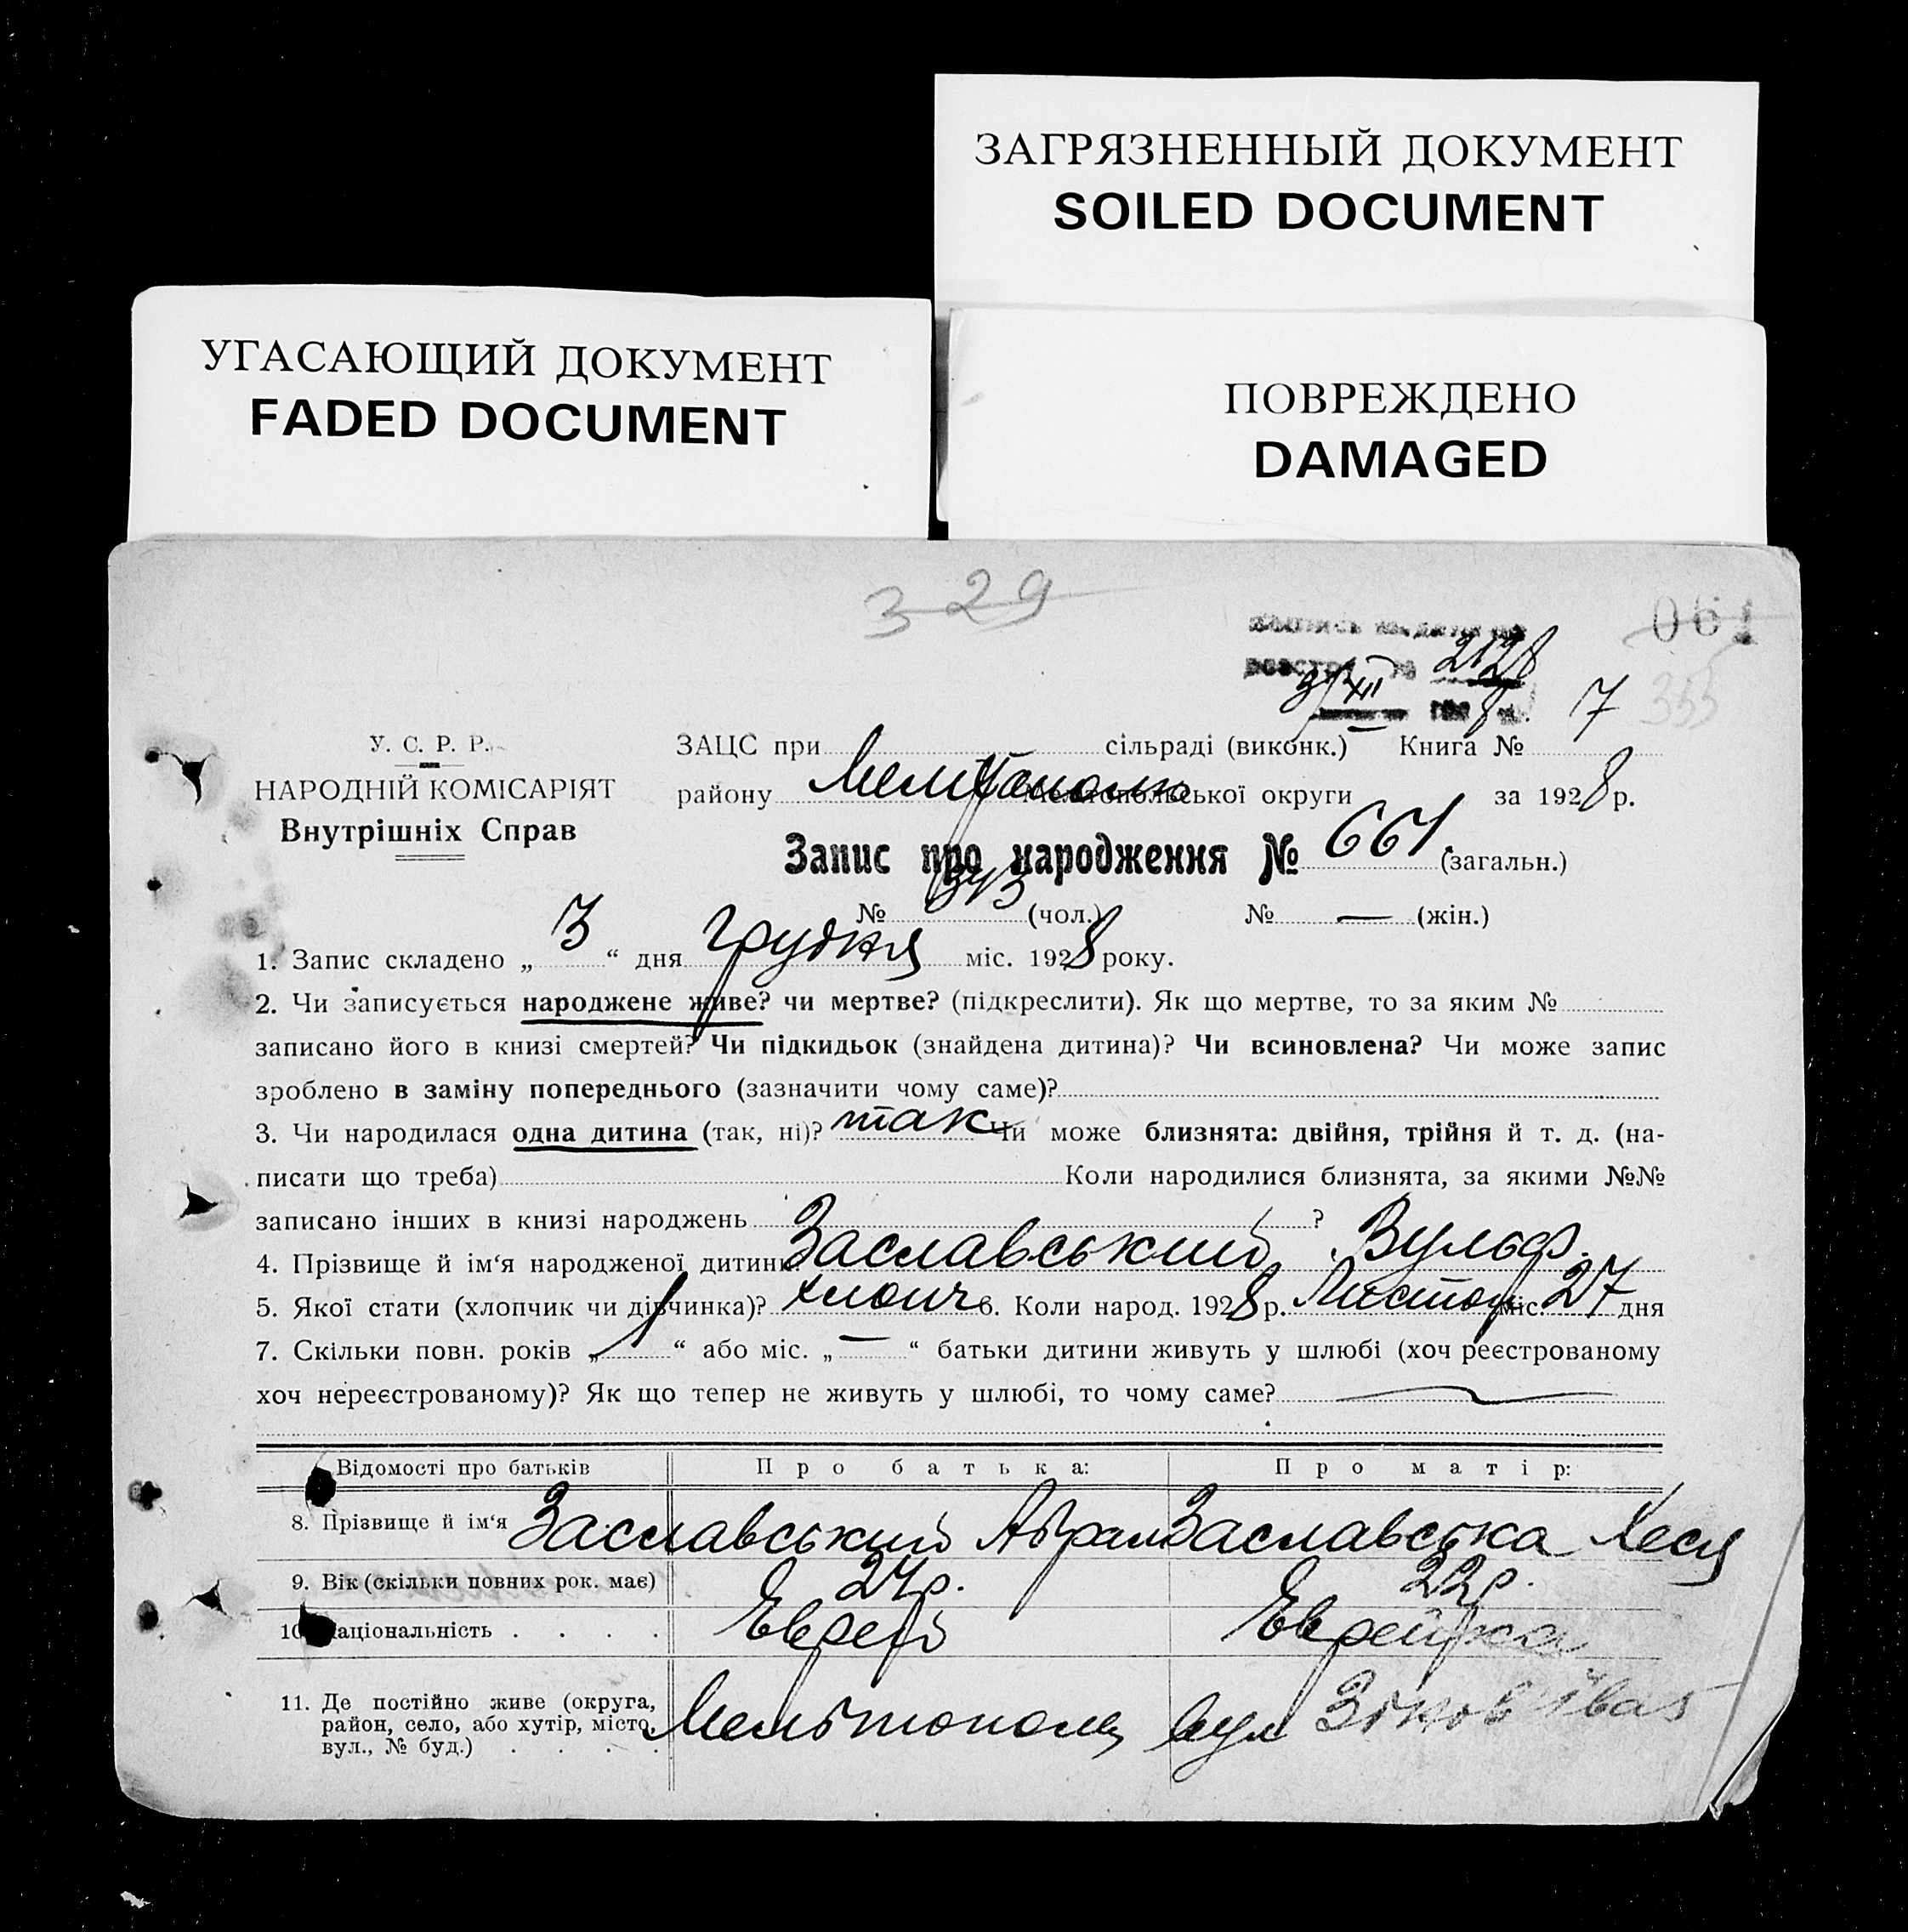 ЗАГРЯЗНЕННЫЙ ДОКУМЕНТ
SOILED DOCUMENT
УГАСАЮЩИЙ ДОКУМЕНТ
FADED DOCUMENT
ПОВРЕЖДЕНО
DAMAGED
3 29
061
2128
3/XII 8
7 355
У. С. Р. Р.
НАРОДНІЙ КОМІСАРІЯТ
Внутрішніх Справ
ЗАЦС при сільраді (виконк.) Книга №
району Мелітополь Мелітопольської округи за 1928 р.
Запис про народження № 661 (загальн.)
№ 343 (чол.) № — (жін.)
1. Запис складено „ 3 “ дня грудня міс. 1928 року.
2. Чи записується народжене живе? чи мертве? (підкреслити). Як що мертве, то за яким №
записано його в книзі смертей? Чи підкидьок (знайдена дитина)? Чи всиновлена? Чи може запис
зроблено в заміну попереднього (зазначити чому саме)?
3. Чи народилася одна дитина (так, ні)? так Чи може близнята: двійня, трійня й т. д. (на-
писати що треба) Коли народилися близнята, за якими №№
записано інших в книзі народжень ?
4. Прізвище й ім‘я народженої дитини Заславський Вульф.
5. Якої стати (хлопчик чи дівчинка)? хлопч 6. Коли народ. 1928 р. Листоп міс. 27 дня
7. Скільки повн. років „ 1 “ або міс. „ — “ батьки дитини живуть у шлюбі (хоч реєстрованому
хоч нереєстрованому)? Як що тепер не живуть у шлюбі, то чому саме? —
Відомості про батьків Про батька: Про матір:
8. Прізвище й ім‘я Заславський Абрам Заславська Хеся
9. Вік (скільки повних рок. має) 24 р. 22 р.
10 аціональність . . . . Еврей Еврейка
11. Де постійно живе (округа,
район, село, або хутір, місто,
вул., № буд.) . . . . Мелітополь вул